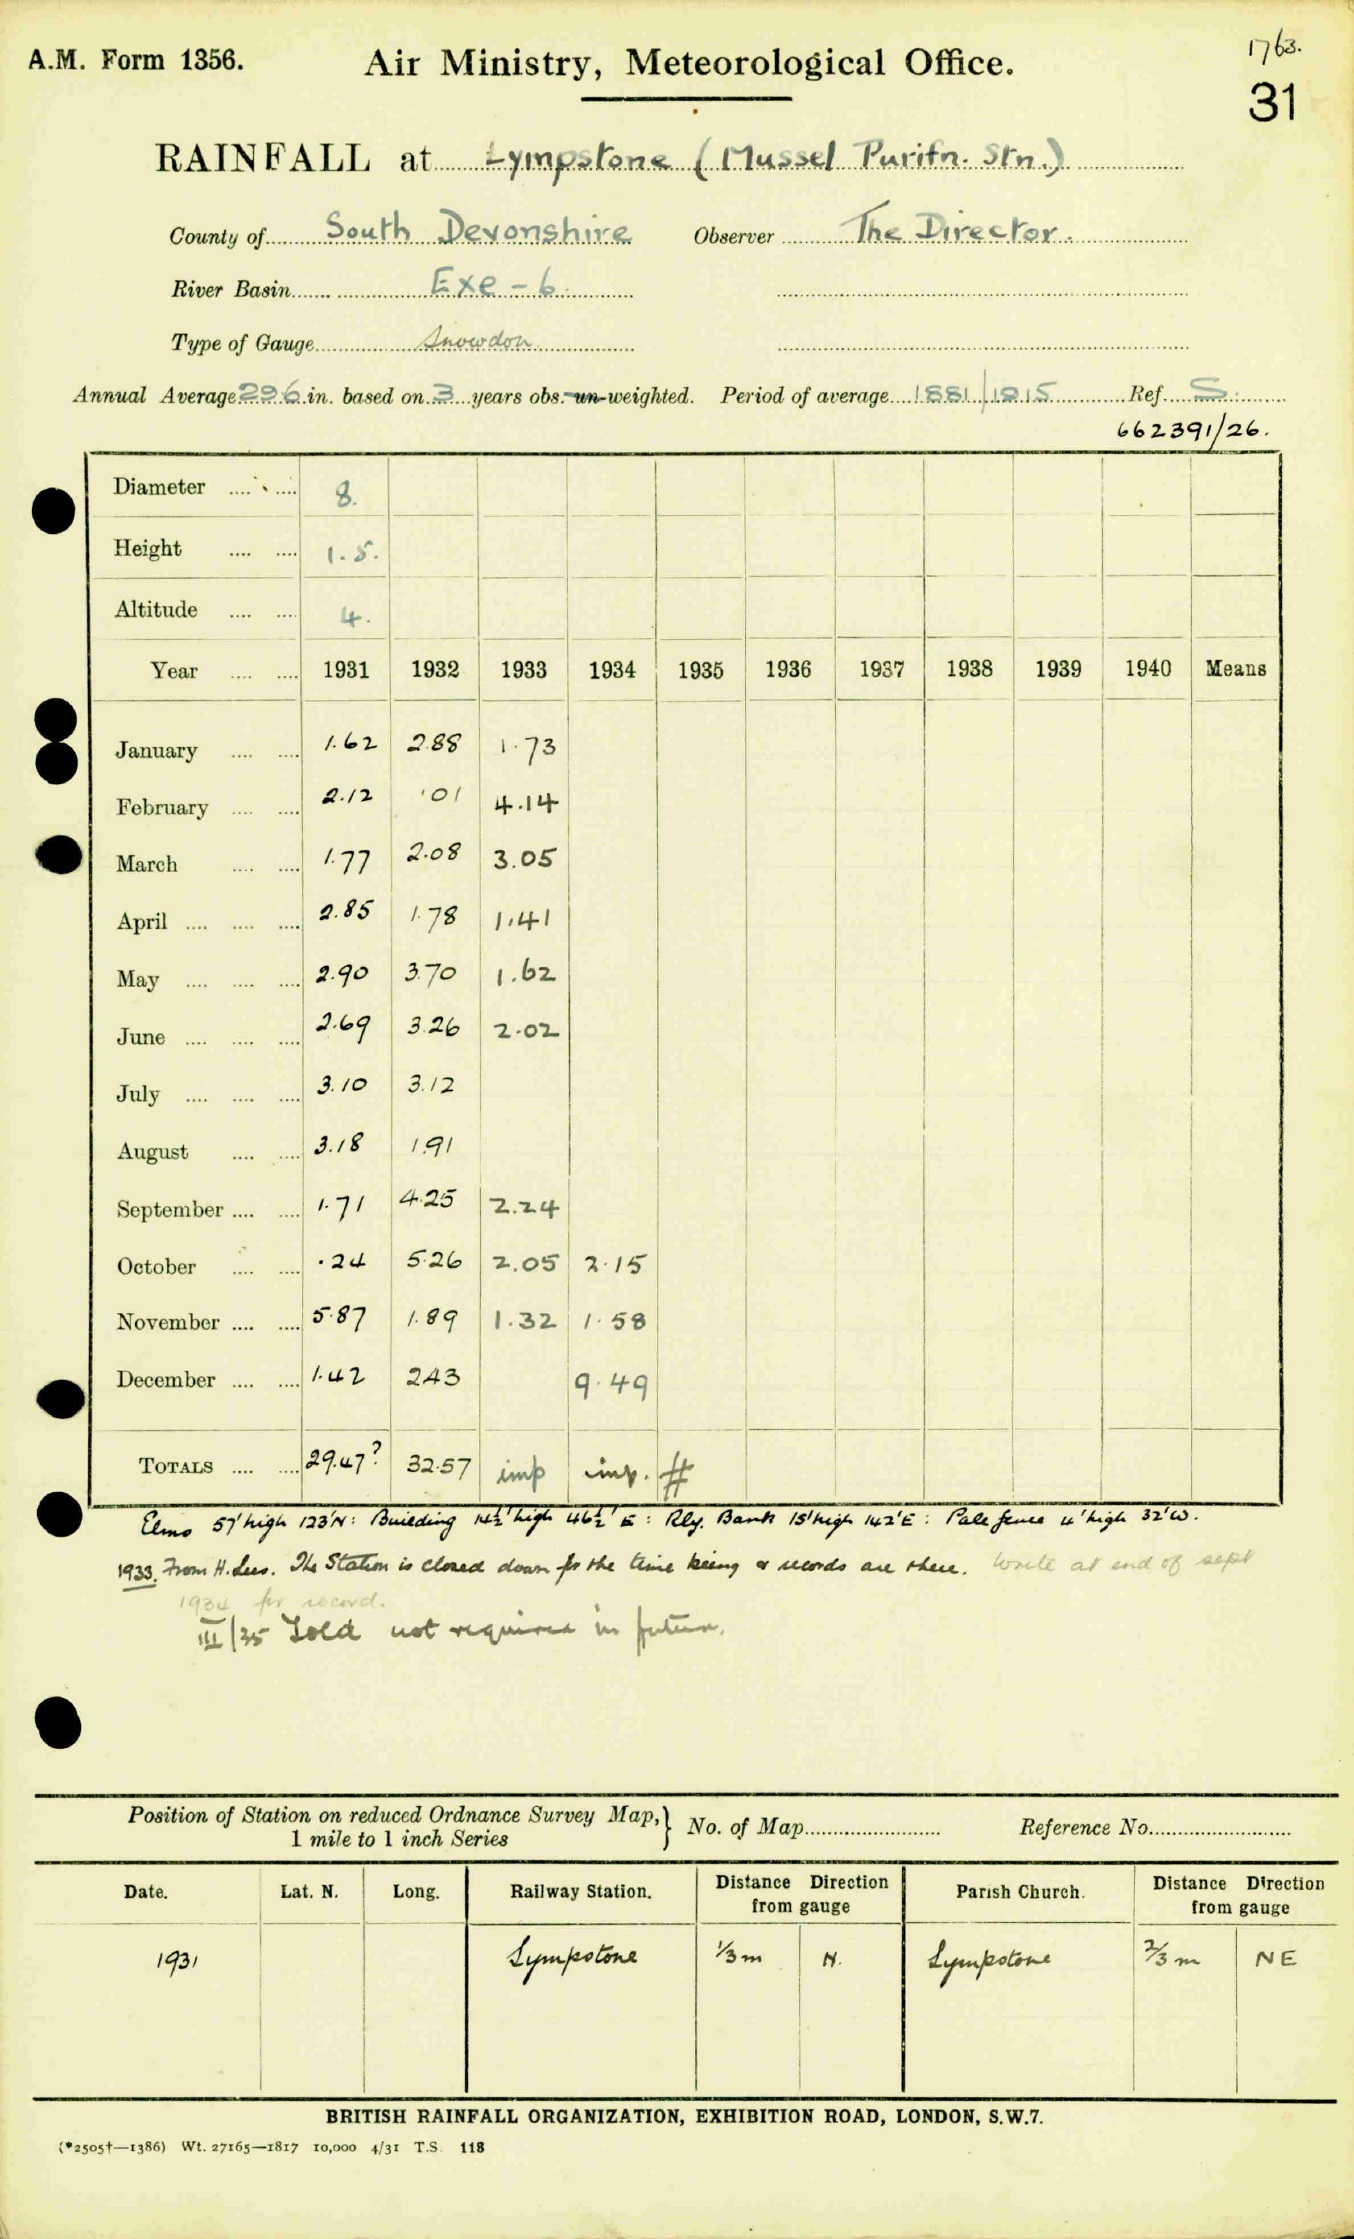 A.M. Form 1356.
Air Ministry, Meteorological Office.
1763.
31
RAINFALL at Lympstone (Mussel Purifn. Stn.)
County of South Devonshire Observer The Director.
River Basin Exe - 6
Type of Gauge Snowdon
Annual Average 29.6 in. based on 3 years obs. un-weighted. Period of average 1881/1915 Ref. S.
662391/26.
Diameter 8.
Height 1.5.
Altitude 4.
Year 1931 1932 1933 1934 1935 1936 1937 1938 1939 1940 Means
January 1.62 2.88 1.73
February 2.12 .01 4.14
March 1.77 2.08 3.05
April 2.85 1.78 1.41
May 2.90 3.70 1.62
June 2.69 3.26 2.02
July 3.10 3.12
August 3.18 1.91
September 1.71 4.25 2.24
October .24 5.26 2.05 2.15
November 5.87 1.89 1.32 1.58
December 1.42 2.43 9.49
TOTALS 29.47? 32.57 imp imp. #
Elms 57' high 123'N: Building 14½' high 46½' E: Rly. Bank 15' high 142'E: Pale fence 4' high 32'W.
1933. From H. The Station is closed down for the time being & records are there. Write at end of sept
1934 for record.
III/35 Told not required in future.
Position of Station on reduced Ordnance Survey Map,} No. of Map Reference No.
1 mile to 1 inch Series
Date. Lat. N. Long. Railway Station. Distance Direction from gauge Parish Church. Distance Direction from gauge
1931 Lympstone 1/3 m N. Lympstone 2/3 m NE
BRITISH RAINFALL ORGANIZATION, EXHIBITION ROAD, LONDON, S.W.7.
(*2505†—1386) Wt. 27165—1817 10,000 4/31 T.S. 118